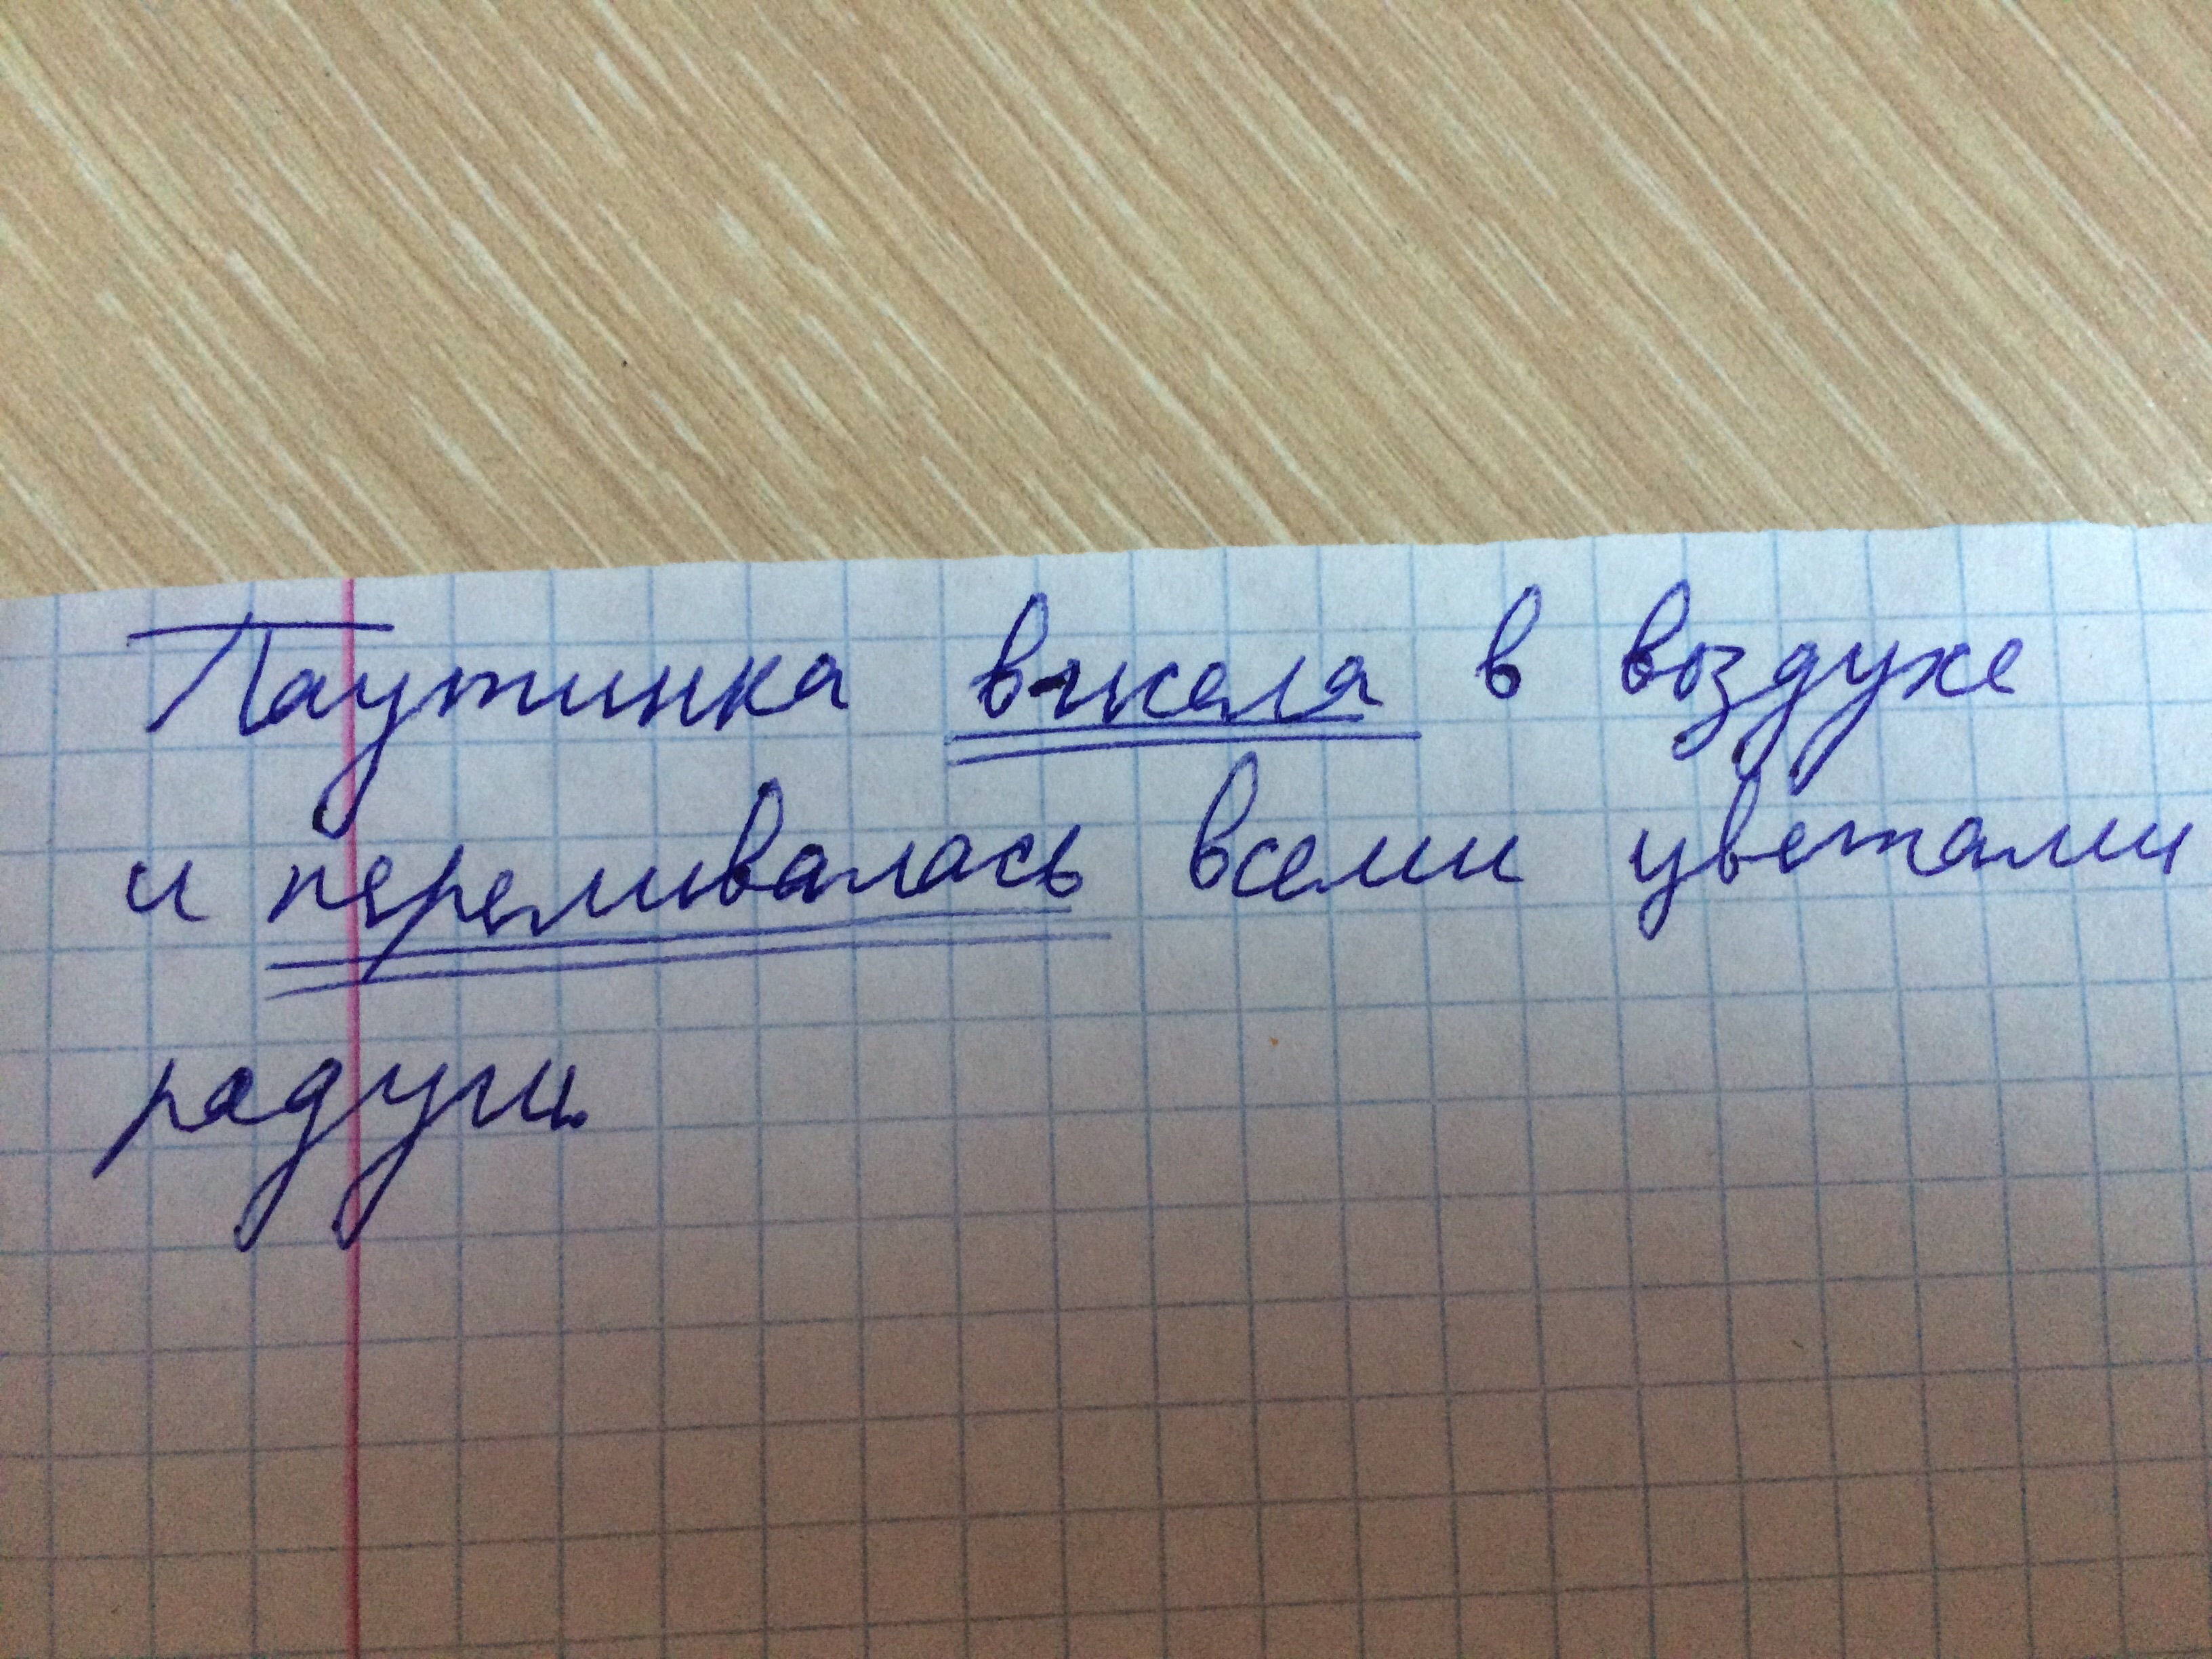 Паутинка висела в воздухе
и переливалась всеми цветами
радуги.